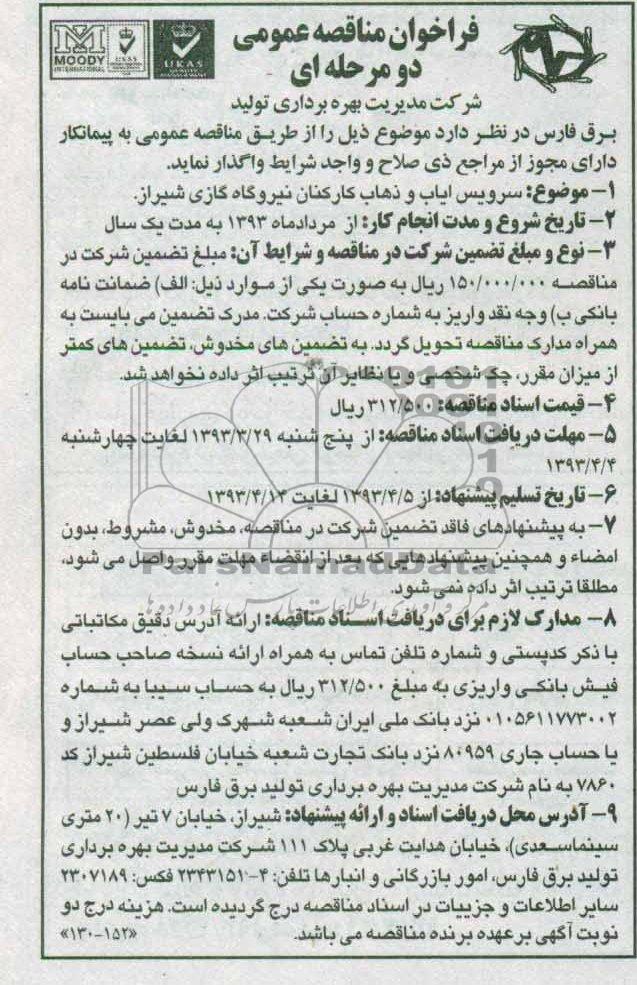 فراخوان مناقصه عمومی
دو مرحله ای
MOODY
INTERNATIONAL
UKAS
UKAS
شرکت مدیریت بهره برداری تولید
برق فارس در نظر دارد موضوع ذیل را از طریق مناقصه عمومی به پیمانکار
دارای مجوز از مراجع ذی صلاح و واجد شرایط واگذار نماید.
۱- موضوع: سرویس ایاب و ذهاب کارکنان نیروگاه گازی شیراز.
۲- تاریخ شروع و مدت انجام کار: از مردادماه ۱۳۹۳ به مدت یک سال
۳- نوع و مبلغ تضمین شرکت در مناقصه و شرایط آن: مبلغ تضمین شرکت در
مناقصه ۱۵۰/۰۰۰/۰۰۰ ریال به صورت یکی از موارد ذیل: الف) ضمانت نامه
بانکی ب) وجه نقد واریز به شماره حساب شرکت. مدرک تضمین می بایست به
همراه مدارک مناقصه تحویل گردد. به تضمین های مخدوش، تضمین های کمتر
از میزان مقرر، چک شخصی و یا نظایر آن ترتیب اثر داده نخواهد شد.
۴- قیمت اسناد مناقصه: ۳۱۲/۵۰۰ ریال
۵- مهلت دریافت اسناد مناقصه: از پنج شنبه ۱۳۹۳/۳/۲۹ لغایت چهارشنبه
۱۳۹۳/۴/۴
۶- تاریخ تسلیم پیشنهاد: از ۱۳۹۳/۴/۵ لغایت ۱۳۹۳/۴/۱۴
۷- به پیشنهادهای فاقد تضمین شرکت در مناقصه، مخدوش، مشروط، بدون
امضاء و همچنین پیشنهادهایی که بعد از انقضاء مهلت مقرر واصل می شود،
ParsNamadData
مطلقا ترتیب اثر داده نمی شود.
۸- مدارک لازم برای دریافت اسناد مناقصه: ارائه آدرس دقیق مکاتباتی
با ذکر کدپستی و شماره تلفن تماس به همراه ارائه نسخه صاحب حساب
فیش بانکی واریزی به مبلغ ۳۱۲/۵۰۰ ریال به حساب سیبا به شماره
۰۱۰۵۶۱۱۷۷۳۰۰۲ نزد بانک ملی ایران شعبه شهرک ولی عصر شیراز و
یا حساب جاری ۸۰۹۵۹ نزد بانک تجارت شعبه خیابان فلسطین شیراز کد
۷۸۶۰ به نام شرکت مدیریت بهره برداری تولید برق فارس
۹- آدرس محل دریافت اسناد و ارائه پیشنهاد: شیراز، خیابان ۷ تیر (۲۰ متری
سینماسعدی)، خیابان هدایت غربی پلاک ۱۱۱ شرکت مدیریت بهره برداری
تولید برق فارس، امور بازرگانی و انبارها تلفن: ۴-۲۳۴۳۱۵۱ فکس: ۲۳۰۷۱۸۹
سایر اطلاعات و جزییات در اسناد مناقصه درج گردیده است. هزینه درج دو
نوبت آگهی بر عهده برنده مناقصه می باشد. «۱۵۲-۱۳۰»